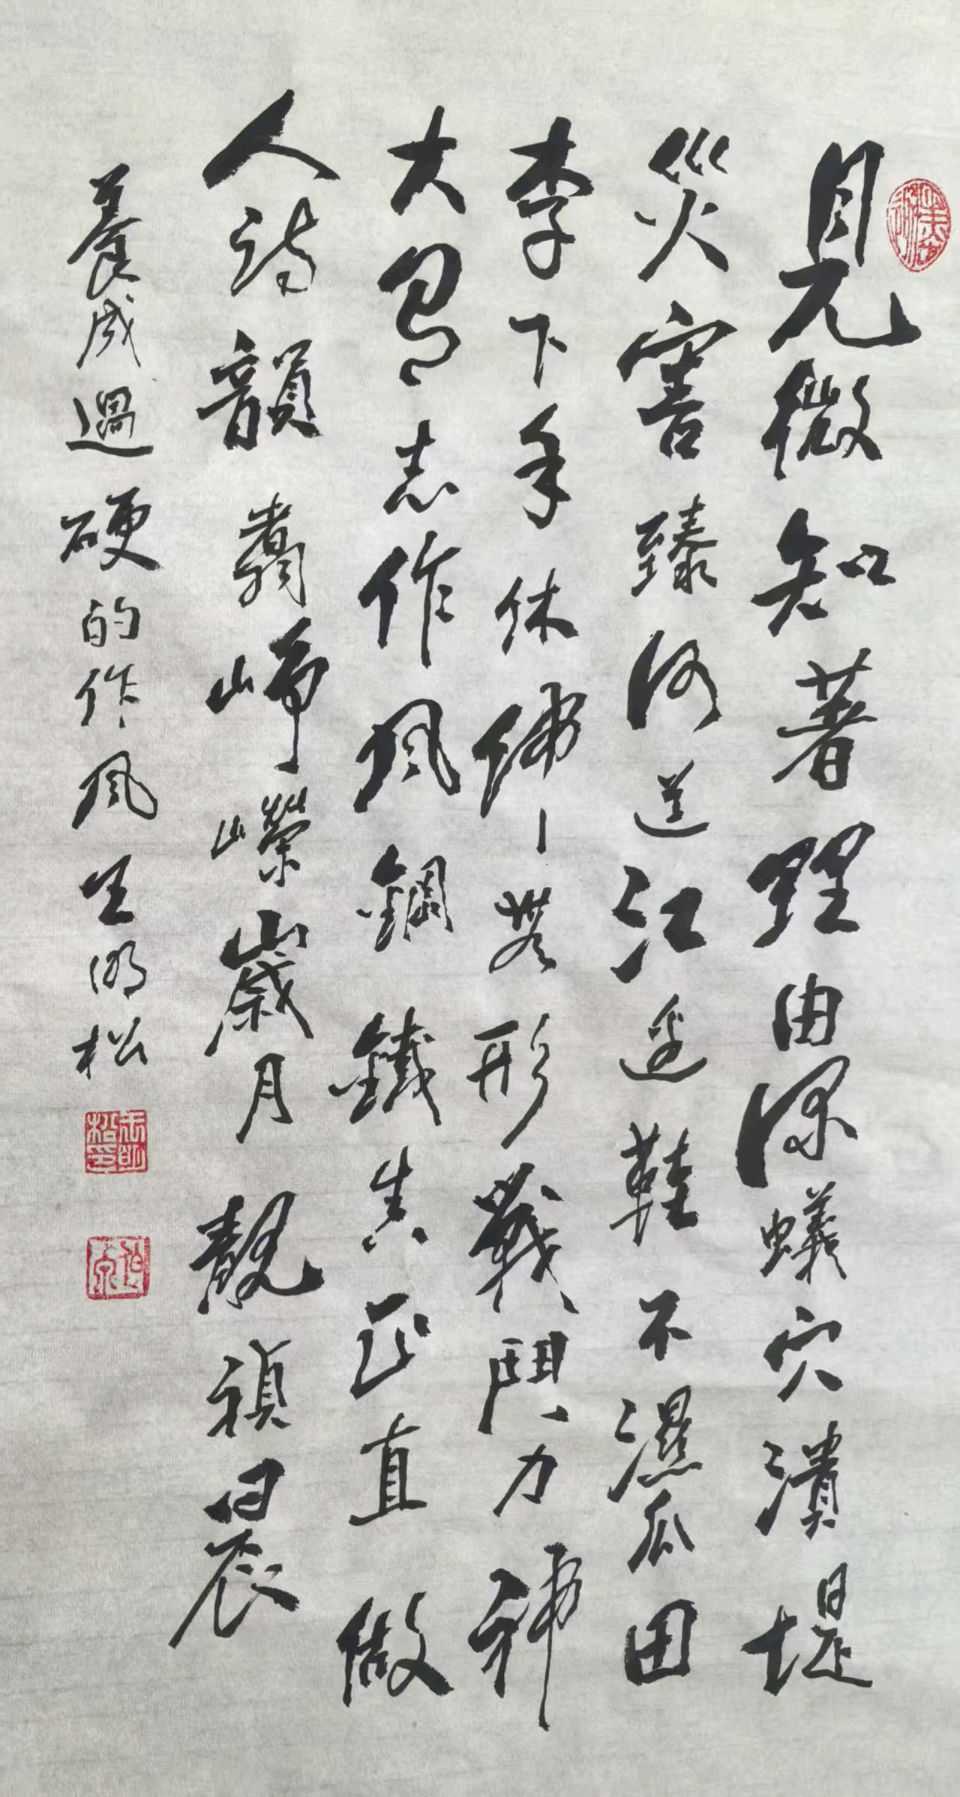 見微知著理由深蟻穴潰堤
災害臻河道江邊鞋不濕瓜田
李下手休伸無形戰鬥力神
大志作風鋼鐵真正直做
人詩韻翥崢嶸歲月靚禎晨
養成過硬的作風 王明松